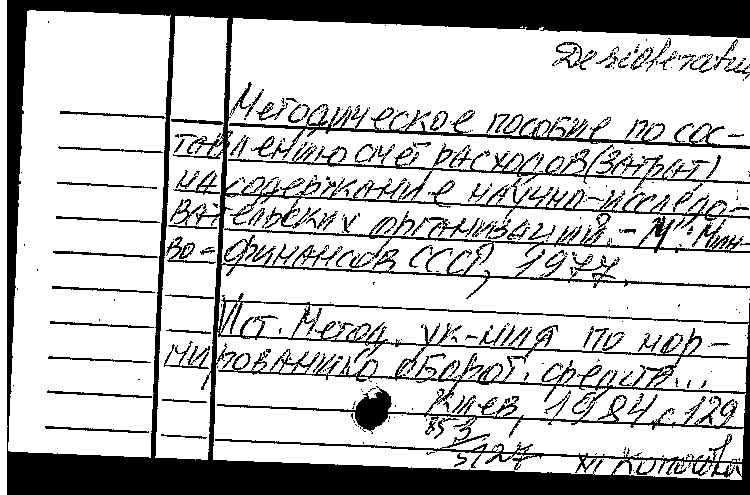 Desideratum
Методическое пособие по сос-
тавлению смет расходов (затрат)
на содержание научно-исследо-
вательских организаций. - М.: Мин-
во финансов СССР, 1977.
Ист. Метод. ук-ния по нор-
мированию оборот. средств...
Киев, 1984, с. 129